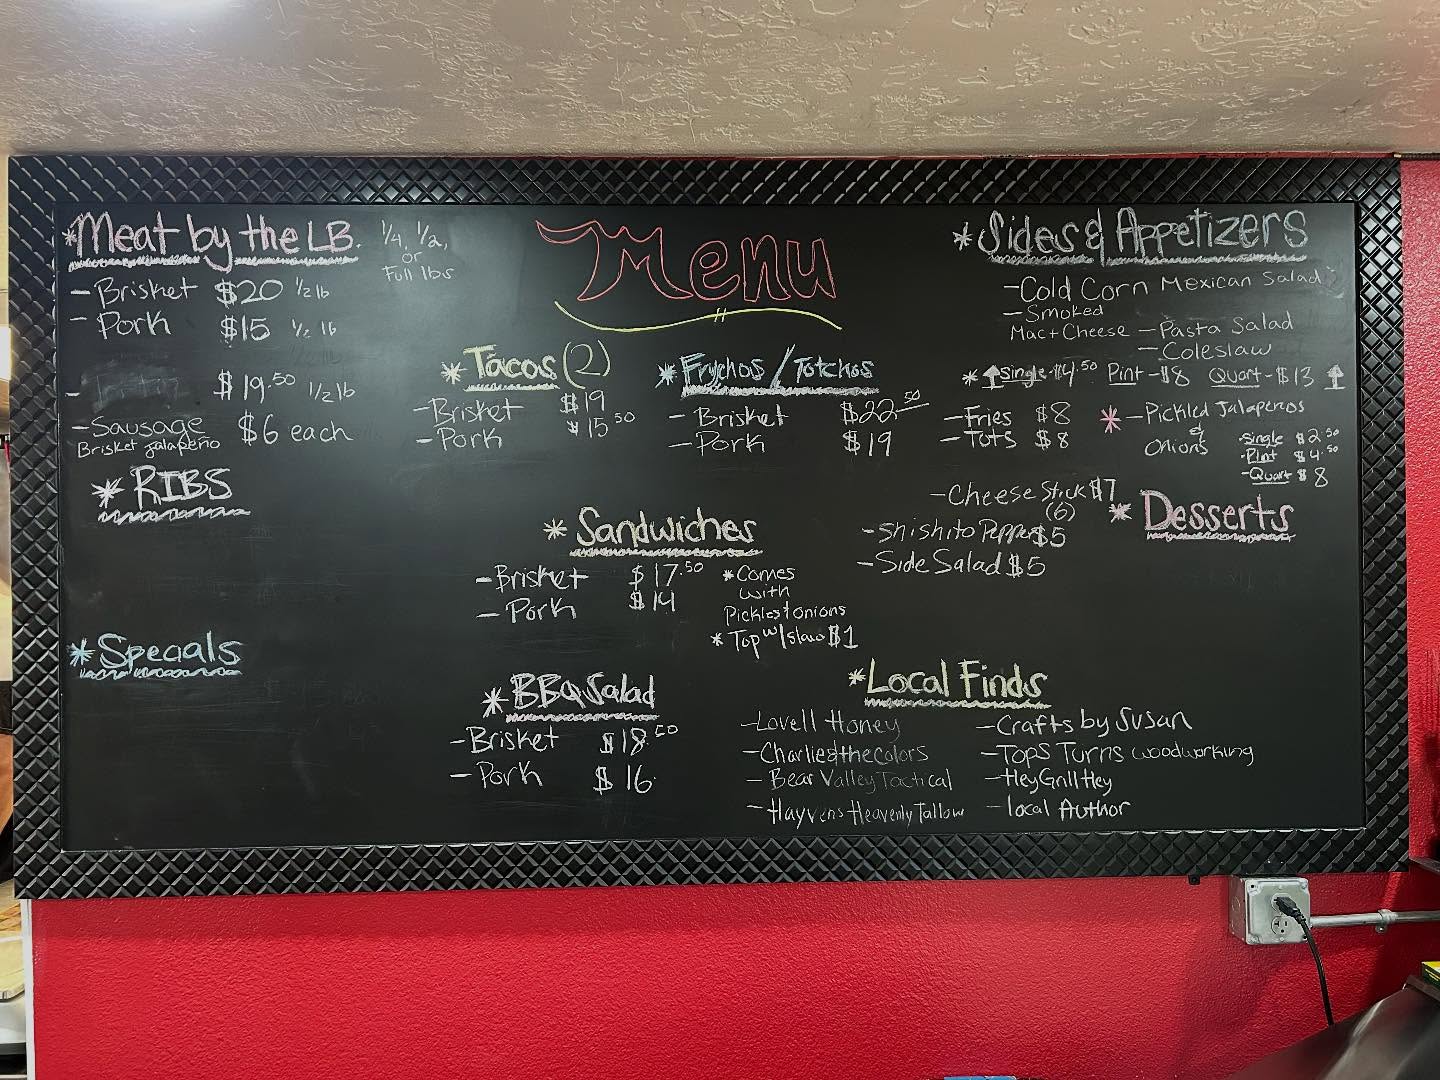 Menu
*Meat by the LB. 1/4, 1/2,
or
Full lbs
- Brisket $20 1/2 lb
- Pork $15 1/2 lb
- $19.50 1/2 lb
- Sausage $6 each
Brisket jalapeño
* RIBS
*Specials
*Tacos (2)
- Brisket $19
- Pork $15.50
*Frychos / Totchos
- Brisket $22.50
- Pork $19
* Sandwiches
- Brisket $17.50
- Pork $14
*Comes
with
Pickles & onions
* Top w/ slaw $1
* BBQ Salad
- Brisket $18.50
- Pork $16
*Sides & Appetizers
- Cold Corn Mexican Salad
- Smoked
Mac + Cheese
- Pasta Salad
- Coleslaw
* ↑ Single - $4.50 Pint - $8 Quart - $13 ↑
- Fries $8
- Tots $8
* - Pickled Jalapenos
&
Onions
- Single $2.50
- Pint $4.50
- Quart $8
- Cheese Stick $7
(6)
- Shishito Pepper $5
- Side Salad $5
* Desserts
*Local Finds
- Lovell Honey
- Charlie & the Colors
- Bear Valley Tactical
- Hayvens Heavenly Tallow
- Crafts by Susan
- Tops Turns woodworking
- HeyGrillHey
- local Author